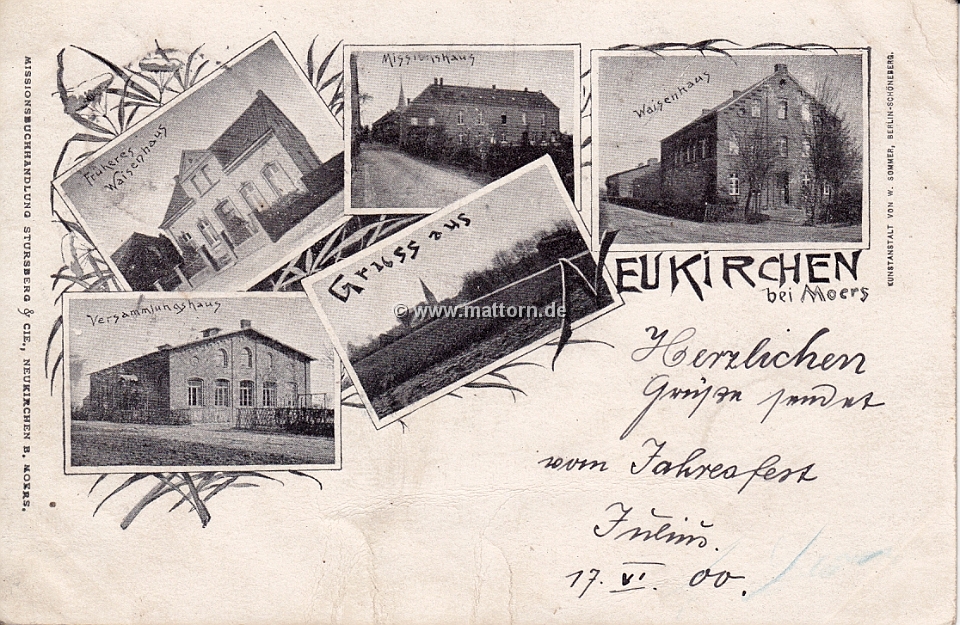 MISSIONSBUCHHANDLUNG STURSBERG & CIE., NEUKIRCHEN B. MOERS.
Früheres
Waisenhaus
Missionshaus
Waisenhaus
KUNSTANSTALT VON W. SOMMER, BERLIN-SCHÖNEBERG.
Gruss aus
NEUKIRCHEN
bei Moers
Versammlungshaus
© www.mattorn.de
Herzlichen
Grüße sendet
vom Jahresfest
Julius.
17. VI. 00.